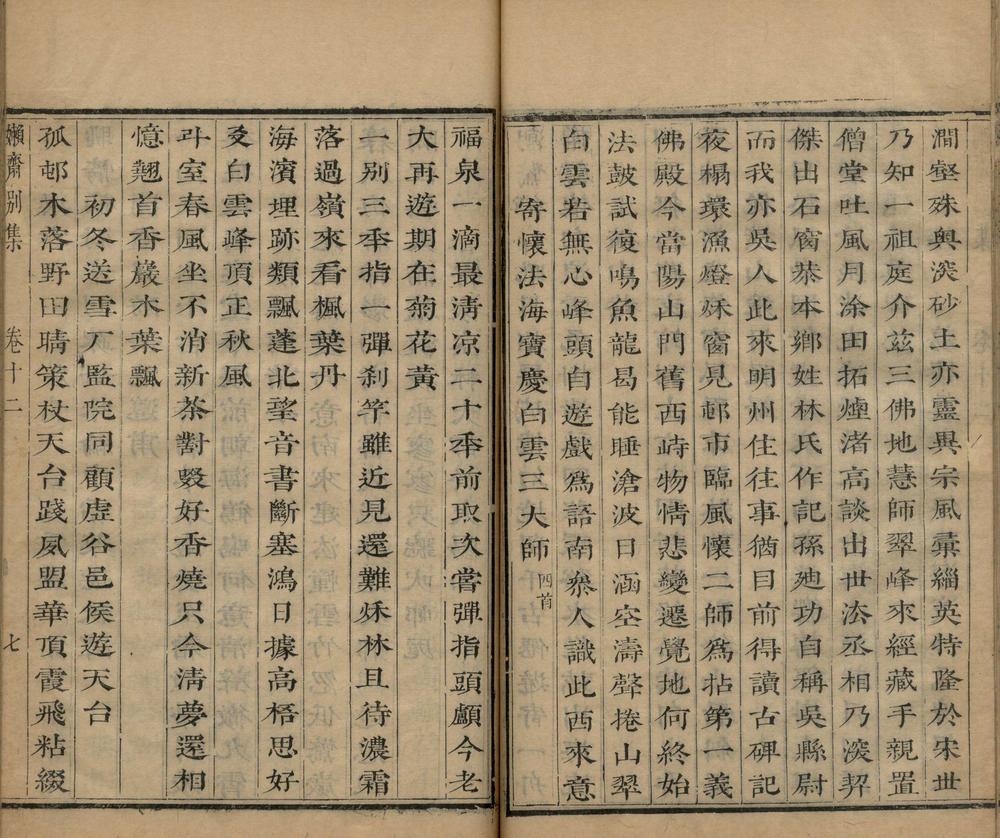 澗壑殊輿深砂土亦靈異宗風彚緇英特隆於宋世
乃知一祖庭介茲三佛地慧師翠峰來經藏手親置
僧堂吐風月涂田拓煙渚高談出世法丞相乃深契
傑出石窗恭本鄉姓林氏作記孫廸功自稱吳縣尉
而我亦吳人此來明州住往事猶目前得讀古碑記
夜榻環漁燈姀窗見邨市臨風懷二師爲拈第一義
佛殿今當陽山門舊西峙物情悲變遷覺地何終始
法鼓試復鳴魚龍曷能睡滄波日涵空濤聲捲山翠
白雲若無心峰頭自遊戲爲語南叅人識此西來意
寄懷法海寶慶白雲三大師四首
福泉一滴最淸凉二十秊前取次嘗彈指頭顱今老
大再遊期在菊花黃
一別三秊指一彈刹竿雖近見還難秌林且待濃霜
落過嶺來看楓葉丹
海濱埋跡類飄蓬北望音書斷塞鴻日據高梧思好
友白雲峰頂正秋風
斗室春風坐不消新茶對毀好香燒只今淸夢還相
憶翹首香巖木葉飄
初冬送雪厂監院同顧虛谷邑侯遊天台
孤邨木落野田晴策杖天台踐夙盟華頂霞飛粘綴
嬾齋別集
卷十二
七